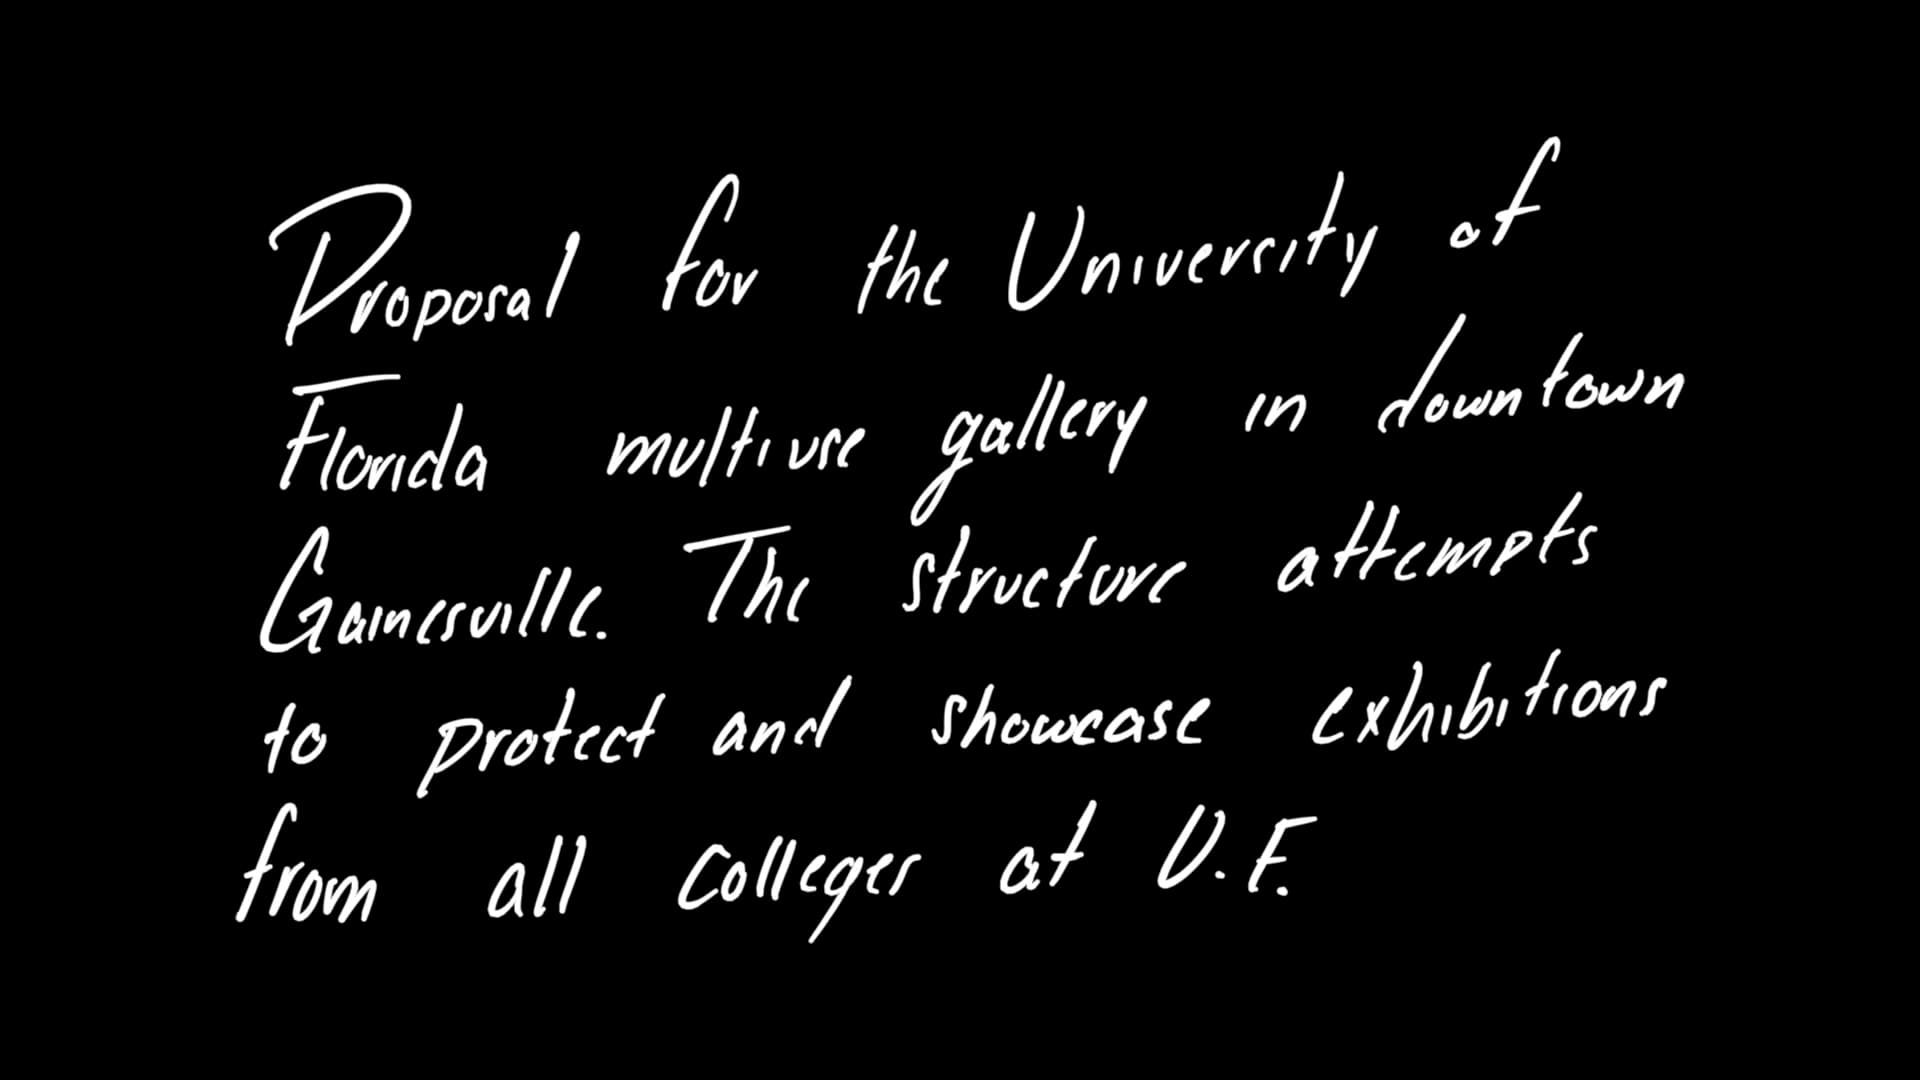 Proposal for the University of
Florida multiuse gallery in downtown
Gainesville. The structure attempts
to protect and showcase exhibitions
from all colleges at U.F.